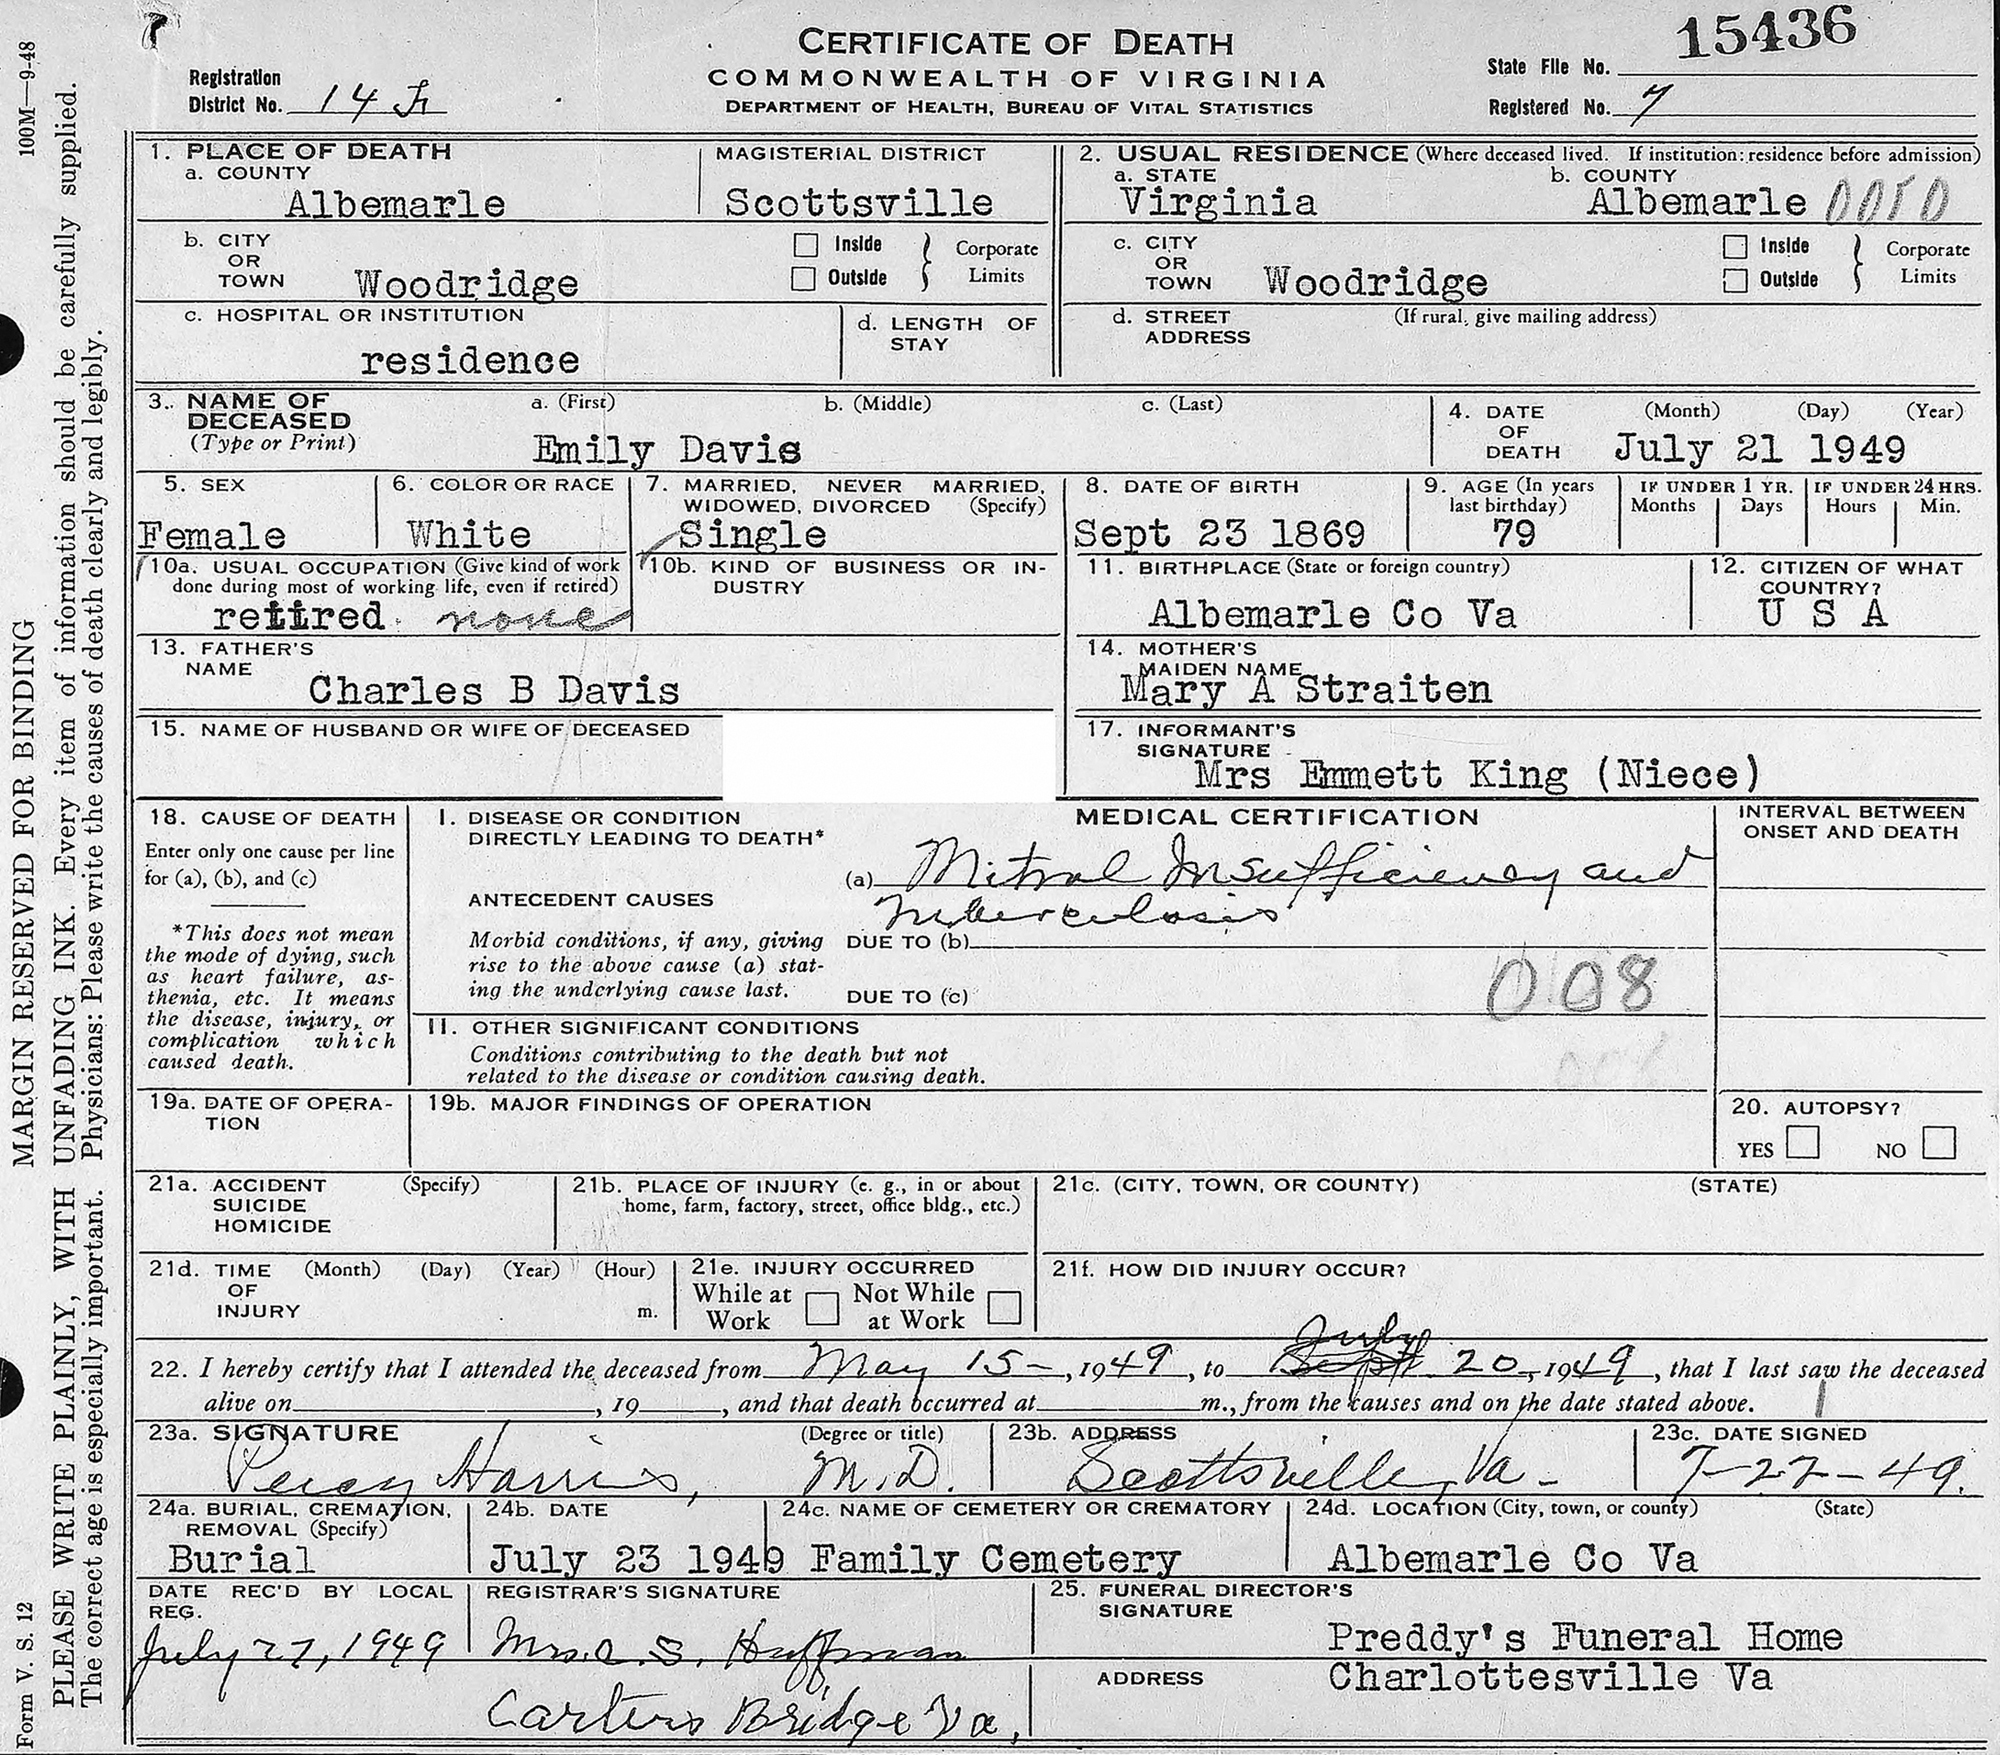 15436
CERTIFICATE OF DEATH
COMMONWEALTH OF VIRGINIA
DEPARTMENT OF HEALTH, BUREAU OF VITAL STATISTICS
Registration
District No. 14
State File No.
Registered No. 7
100M—9-48
MARGIN RESERVED FOR BINDING
Form V. S. 12
PLEASE WRITE PLAINLY, WITH UNFADING INK. Every item of information should be carefully supplied.
The correct age is especially important. Physicians: Please write the causes of death clearly and legibly.
1. PLACE OF DEATH
a. COUNTY
Albemarle
MAGISTERIAL DISTRICT
Scottsville
2. USUAL RESIDENCE (Where deceased lived. If institution: residence before admission)
a. STATE
Virginia
b. COUNTY
Albemarle
b. CITY
OR
TOWN Woodridge
Inside
Outside
Corporate
Limits
c. CITY
OR
TOWN Woodridge
Inside
Outside
Corporate
Limits
c. HOSPITAL OR INSTITUTION
residence
d. LENGTH OF
STAY
d. STREET
ADDRESS
(If rural, give mailing address)
3. NAME OF
DECEASED
(Type or Print)
a. (First) b. (Middle) c. (Last)
Emily Davis
4. DATE
OF
DEATH
(Month) (Day) (Year)
July 21 1949
5. SEX
Female
6. COLOR OR RACE
White
7. MARRIED, NEVER MARRIED,
WIDOWED, DIVORCED (Specify)
Single
8. DATE OF BIRTH
Sept 23 1869
9. AGE (In years
last birthday)
79
IF UNDER 1 YR.
Months Days
IF UNDER 24 HRS.
Hours Min.
10a. USUAL OCCUPATION (Give kind of work
done during most of working life, even if retired)
retired none
10b. KIND OF BUSINESS OR IN-
DUSTRY
11. BIRTHPLACE (State or foreign country)
Albemarle Co Va
12. CITIZEN OF WHAT
COUNTRY?
U S A
13. FATHER'S
NAME
Charles B Davis
14. MOTHER'S
MAIDEN NAME
Mary A Straiten
15. NAME OF HUSBAND OR WIFE OF DECEASED
17. INFORMANT'S
SIGNATURE
Mrs Emmett King (Niece)
18. CAUSE OF DEATH
Enter only one cause per line
for (a), (b), and (c)
*This does not mean
the mode of dying, such
as heart failure, as-
thenia, etc. It means
the disease, injury, or
complication which
caused death.
MEDICAL CERTIFICATION
I. DISEASE OR CONDITION
DIRECTLY LEADING TO DEATH*
(a) Mitral Insufficiency and
Tuberculosis
ANTECEDENT CAUSES
Morbid conditions, if any, giving
rise to the above cause (a) stat-
ing the underlying cause last.
DUE TO (b)
DUE TO (c)
008
INTERVAL BETWEEN
ONSET AND DEATH
II. OTHER SIGNIFICANT CONDITIONS
Conditions contributing to the death but not
related to the disease or condition causing death.
19a. DATE OF OPERA-
TION
19b. MAJOR FINDINGS OF OPERATION
20. AUTOPSY?
YES NO
21a. ACCIDENT (Specify)
SUICIDE
HOMICIDE
21b. PLACE OF INJURY (e. g., in or about
home, farm, factory, street, office bldg., etc.)
21c. (CITY, TOWN, OR COUNTY) (STATE)
21d. TIME (Month) (Day) (Year) (Hour)
OF
INJURY m.
21e. INJURY OCCURRED
While at Not While
Work at Work
21f. HOW DID INJURY OCCUR?
July
22. I hereby certify that I attended the deceased from May 15-, 1949, to Sept 20, 1949, that I last saw the deceased
alive on , 19 , and that death occurred at m., from the causes and on the date stated above.
23a. SIGNATURE (Degree or title)
Percy Harris, M.D.
23b. ADDRESS
Scottsville, Va-
23c. DATE SIGNED
7-27-49.
24a. BURIAL, CREMATION,
REMOVAL (Specify)
Burial
24b. DATE
July 23 1949
24c. NAME OF CEMETERY OR CREMATORY
Family Cemetery
24d. LOCATION (City, town, or county) (State)
Albemarle Co Va
DATE REC'D BY LOCAL
REG.
July 27, 1949
REGISTRAR'S SIGNATURE
Mrs. C. S. Huffman
Carters Bridge Va,
25. FUNERAL DIRECTOR'S
SIGNATURE
Preddy's Funeral Home
ADDRESS Charlottesville Va